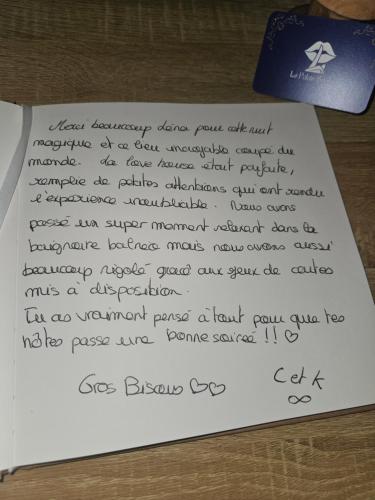 Merci beaucoup Léna pour cette nuit
magique et ce lieu incroyable coupé du
monde. La love house était parfaite,
remplie de petites attentions qui ont rendu
l'expérience inoubliable. Nous avons
passé un super moment relaxant dans la
baignoire balnéo mais nous avons aussi
beaucoup rigolé grace aux jeux de cartes
mis à disposition.
Tu as vraiment pensé à tout pour que tes
hôtes passe une bonne soirée !! ♡
Gros Bisous ♡♡
C et K
∞